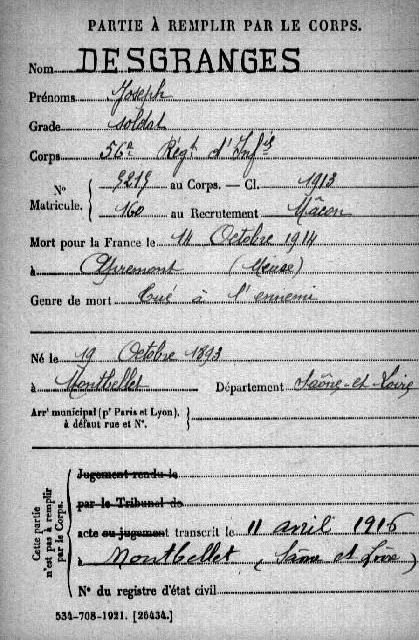 PARTIE À REMPLIR PAR LE CORPS.
Nom DESGRANGES
Prénoms Joseph
Grade soldat
Corps 56e Régt d'Infie
N° Matricule. 9219 au Corps. — Cl. 1913
160 au Recrutement Mâcon
Mort pour la France le 14 Octobre 1914
à Apremont (Meuse)
Genre de mort Tué à l'ennemi
Né le 19 Octobre 1893
à Montbellet Département Saône-et-Loire
Arrt municipal (pr Paris et Lyon), à défaut rue et N°.
Cette partie n'est pas à remplir par le Corps.
Jugement rendu le
par le Tribunal de
acte ou jugement transcrit le 11 avril 1916
à Montbellet (Saône et Loire)
N° du registre d'état civil
534-708-1921. [26434.]